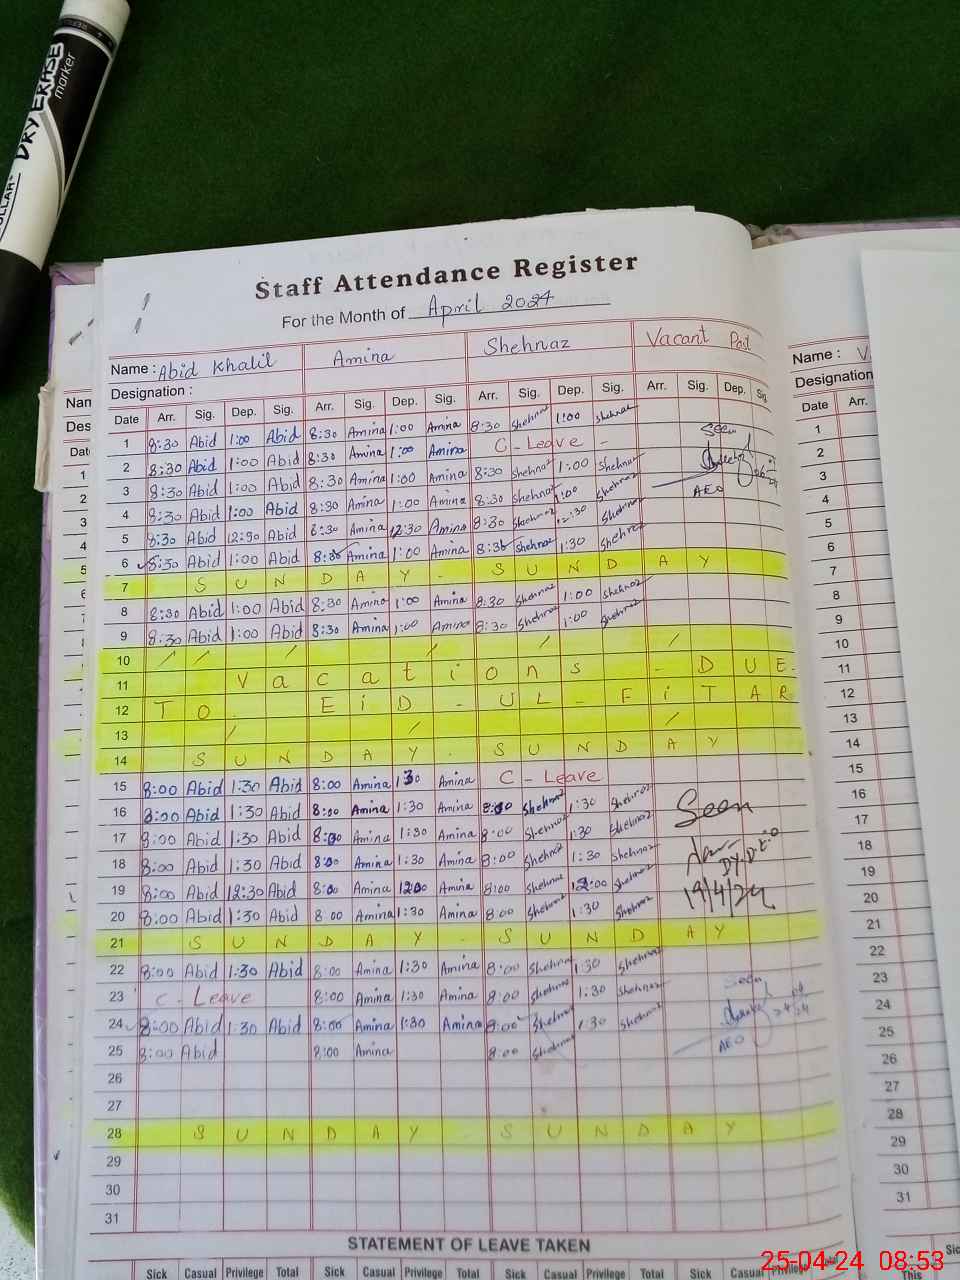 DRY ERASE
marker
Staff Attendance Register
For the Month of April 2024
Name : Abid Khalil Amina Shehnaz Vacant Post
Designation :
Date Arr. Sig. Dep. Sig. Arr. Sig. Dep. Sig. Arr. Sig. Dep. Sig. Arr. Sig. Dep. Sig.
1 8:30 Abid 1:00 Abid 8:30 Amina 1:00 Amina 8:30 Shehnaz 1:00 Shehnaz Seen
2 8:30 Abid 1:00 Abid 8:30 Amina 1:00 Amina C - Leave -
3 8:30 Abid 1:00 Abid 8:30 Amina 1:00 Amina 8:30 Shehnaz 1:00 Shehnaz AEO
4 8:30 Abid 1:00 Abid 8:30 Amina 1:00 Amina 8:30 Shehnaz 1:00 Shehnaz
5 8:30 Abid 12:30 Abid 8:30 Amina 12:30 Amina 8:30 Shehnaz 12:30 Shehnaz
6 8:30 Abid 1:00 Abid 8:30 Amina 1:00 Amina 8:30 Shehnaz 1:30 Shehnaz
7 S U N D A Y - S U N D A Y
8 8:30 Abid 1:00 Abid 8:30 Amina 1:00 Amina 8:30 Shehnaz 1:00 Shehnaz
9 8:30 Abid 1:00 Abid 8:30 Amina 1:00 Amina 8:30 Shehnaz 1:00 Shehnaz
10
11 V a c a t i o n s - D U E -
12 T O E i D - U L - F i T A R
13
14 S U N D A Y - S U N D A Y
15 8:00 Abid 1:30 Abid 8:00 Amina 1:30 Amina C - Leave
16 8:00 Abid 1:30 Abid 8:00 Amina 1:30 Amina 8:00 Shehnaz 1:30 Shehnaz Seen
17 8:00 Abid 1:30 Abid 8:00 Amina 1:30 Amina 8:00 Shehnaz 1:30 Shehnaz
18 8:00 Abid 1:30 Abid 8:00 Amina 1:30 Amina 8:00 Shehnaz 1:30 Shehnaz DY.D.E.O
19 8:00 Abid 12:30 Abid 8:00 Amina 12:00 Amina 8:00 Shehnaz 12:00 Shehnaz 19/4/24
20 8:00 Abid 1:30 Abid 8:00 Amina 1:30 Amina 8:00 Shehnaz 1:30 Shehnaz
21 S U N D A Y - S U N D A Y
22 8:00 Abid 1:30 Abid 8:00 Amina 1:30 Amina 8:00 Shehnaz 1:30 Shehnaz
23 C - Leave 8:00 Amina 1:30 Amina 8:00 Shehnaz 1:30 Shehnaz Seen
24 8:00 Abid 1:30 Abid 8:00 Amina 1:30 Amina 8:00 Shehnaz 1:30 Shehnaz
25 8:00 Abid 8:00 Amina 8:00 Shehnaz AEO
26
27
28 S U N D A Y S U N D A Y
29
30
31
STATEMENT OF LEAVE TAKEN
Sick Casual Privilege Total Sick Casual Privilege Total Sick Casual Privilege Total Sick Casual Privilege Total
Name : V
Designation
Date Arr.
1
2
3
4
5
6
7
8
9
10
11
12
13
14
15
16
17
18
19
20
21
22
23
24
25
26
27
28
29
30
31
This
25-04-24 08:53